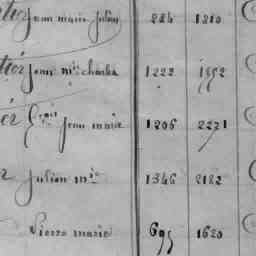 tier Jean marie Julien 224 1210
tier Jean mie charles 1222
er Jean marie 1206 2221
Julien mie 1346 2122
Pierre marie 695 1620